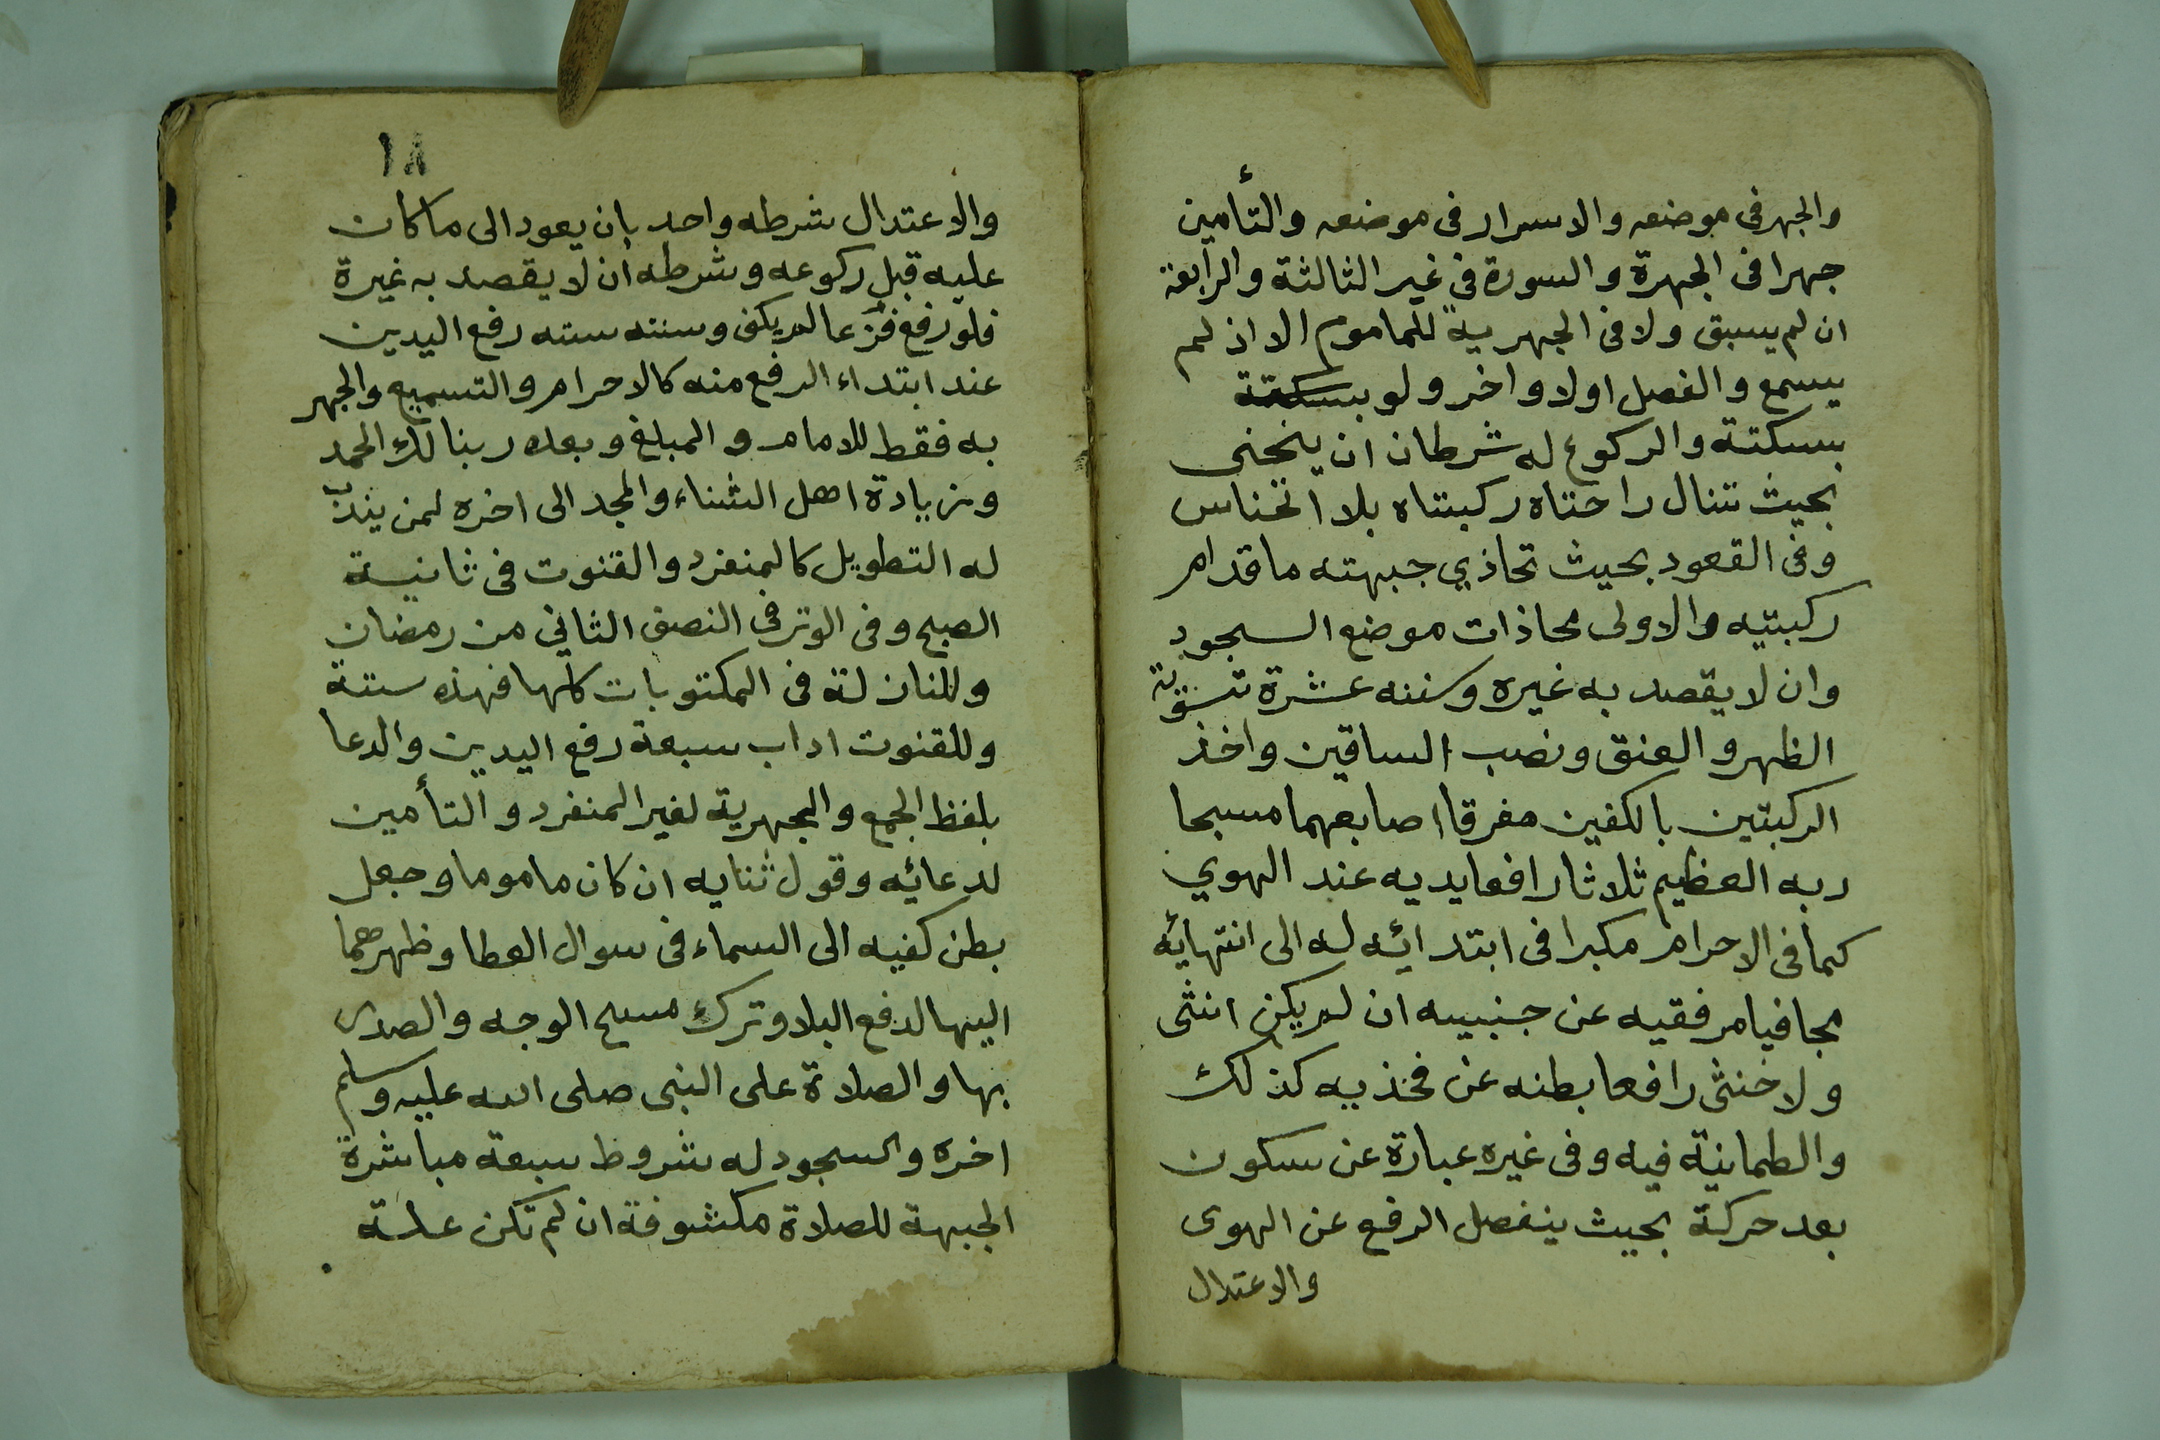 والجهر فى موضعه والاسرار فى موضعه والتأمين
جهرا فى الجهرة والسورة فى غير الثالثة والرابعة
ان لم يسبق ولا فى الجهرية للماموم الا اذ لم
يسمع والفصل اولا واخر ولو بسكتة
بسكتة والركوع له شرطان ان ينحنى
بحيث تنال راحتاه ركبتاه بلا انخناس
وفى القعود بحيث تحاذي جبهته ما قدام
ركبتيه والاولى محاذات موضع السجود
وان لا يقصد به غيره وسننه عشرة تسوية
الظهر والعنق ونصب الساقين واخذ
الركبتين بالكفين مفرقا اصابعهما مسبحا
ربه العظيم ثلاثا رافعا يديه عند الهوي
كما فى الاحرام مكبرا فى ابتدائه له الى انتهائه
مجافيا مرفقيه عن جنبيه ان لم يكن انثى
ولا خنثى رافعا بطنه عن فخذيه كذلك
والطمانية فيه وفى غيره عبارة عن سكون
بعد حركة بحيث ينفصل الرفع عن الهوى
والاعتدال
١٨
والاعتدال شرطه واحد بان يعود الى ما كان
عليه قبل ركوعه وشرطه ان لا يقصد به غيرة
فلو رفع فزعا لم يكف وسننه سته رفع اليدين
عند ابتداء الرفع منه كالاحرام والتسميع والجهر
به فقط للامام والمبلغ وبعده ربنا لك الحمد
وزيادة اهل الثناء والمجد الى اخره لمن يندب
له التطويل كالمنفرد والقنوت فى ثانية
الصبح وفى الوتر فى النصف الثاني من رمضان
وللنازلة فى المكتوبات كلها فهذه ستة
وللقنوت اداب سبعة رفع اليدين والدعا
بلفظ الجمع والجهرية لغير المنفرد والتأمين
لدعائه وقول ثنايه ان كان ماموما وجعل
بطن كفيه الى السماء فى سوال العطا وظهرهما
اليها لدفع البلا وترك مسح الوجه والصدر
بها والصلاة على النبى صلى الله عليه وسلم
اخره والسجود له شروط سبعة مباشرة
الجبهة للصلاة مكشوفة ان لم تكن علة